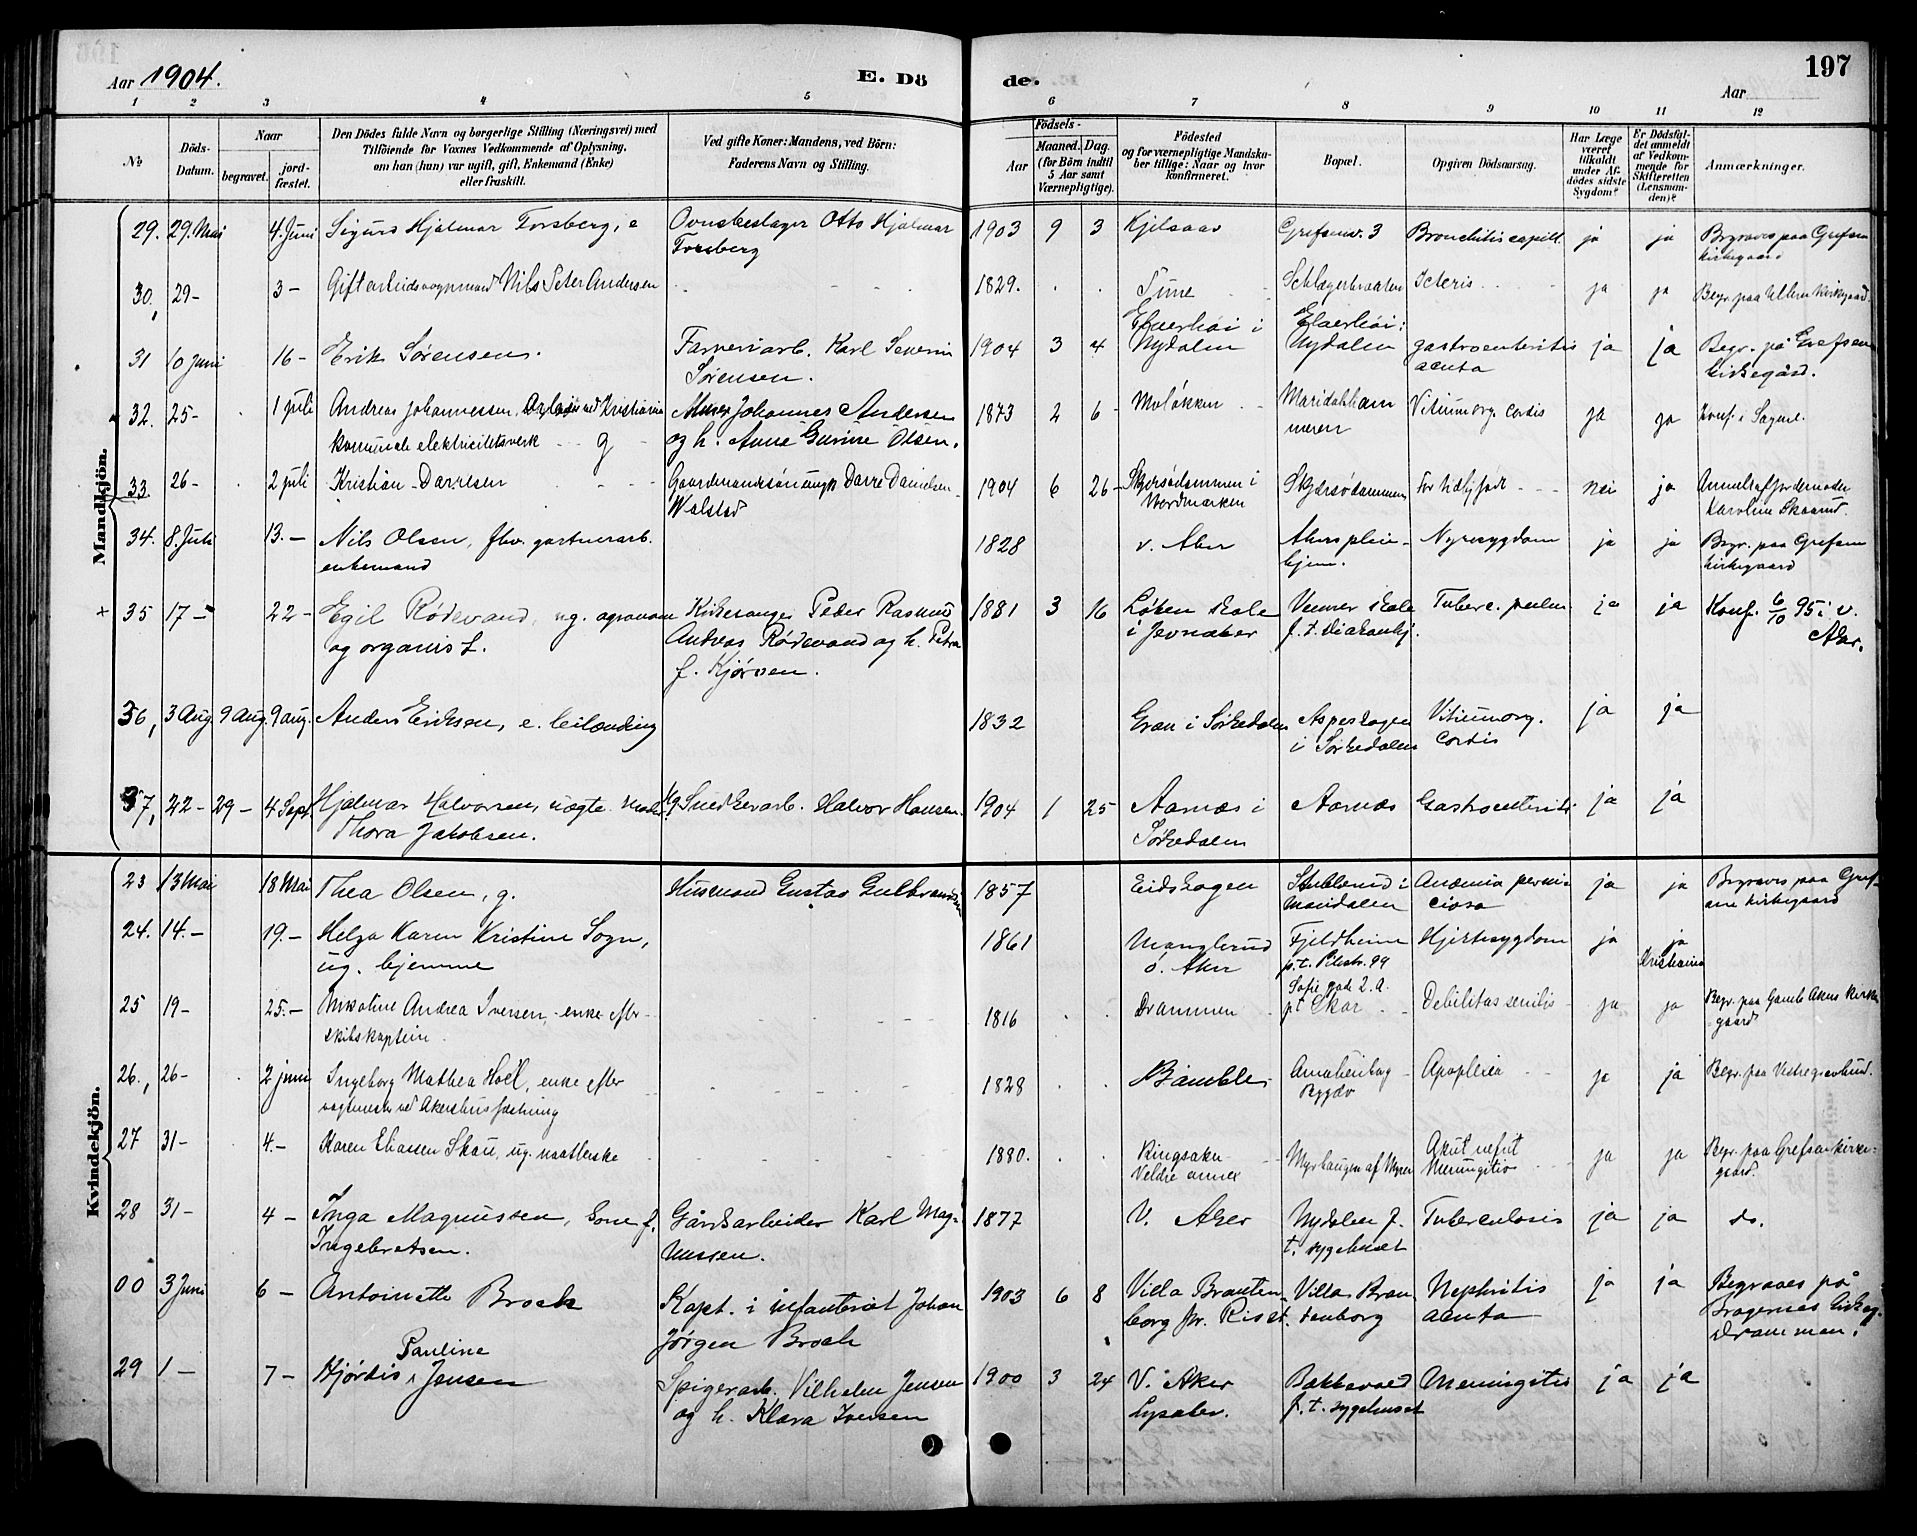 Aar 1904. E. Dö de. Aar 197
1 2 3 4 5 6 7 8 9 10 11 12
№ Döds-Datum. Naar begravet. jord-fæstet. Den Dödes fulde Navn og borgerlige Stilling (Næringsvei) med Tilföiende for Voxnes Vedkommende af Oplysning, om han (hun) var ugift, gift, Enkemand (Enke) eller fraskilt. Ved gifte Koner: Mandens, ved Börn: Faderens Navn og Stilling. Födsels- Aar Maaned. Dag. (for Börn indtil 5 Aar samt Værnepligtige). Födested og for værnepligtige Mandska-ber tillige: Naar og hvor konfirmeret. Bopæl. Opgiven Dödsaarsag. Har Læge været tilkaldt under Af-dödes sidste Sygdom? Er Dödsfal-det anmeldt af Vedkom-mende for Skifteretten (Lensman-den)? Anmærkninger.
Mandkjön.
29. 29. Mai 4. Juni Sigurd Hjalmar Forsberg, e Ovnsbeslager Otto Hjalmar 1903 9 3 Kjelsaas Grefsenv. 3 Bronchitis capill. ja ja Begraves paa Grefsen
Forsberg kirkegaard
30, 29- 3- Gift arbeidsvognmand Nils Peter Andersen 1829. Tune Schlagerbraaten Icteris ja ja Begr. paa Ullern Kirkegaard.
31 10 juni 16- Erik Sørensen. Farveriarb. Karl Severin 1904 3 4 Nydalen Nydalen gastroenteritis ja ja Begr. på Grefsen
Sørensen. acuta kirkegård.
32. 25- 1 juli Andreas Johannessen, ved Kristiania Johannes Andersen 1873 2 6- Moløkken Maridalshammeren Vitium org. cordis ja ja Konf. i Sagene.
elektricitetsverk g og h. Anne Gurine Olsen.
33. 26- 2 juli Kristian Darresen Gaardmandssøn ungk Darre Danielsen 1904 6 26- Skjærsødammen i Skjærsødammen nei ja
Walstad Nordmarken Karoline Skaarud.
34. 8. Juli 13.- Nils Olsen, fhv. gartnerarb. 1828 v. Aker Akers pleie- Nyresygdom ja ja Begr. paa Grefsen
enkemand hjem. kirkegaard
35 17- 22- Egil Rødevand, ug. agronom Kirkesanger Peder Rasmus 1881 3 16 Løken skole Vennver skole Tuberc. pulm ja ja Konf. 6/10 95 i v.
og organist. Andreas Rødevand og h. Petra i Jevnaker f. t. Diakonhj. Aker.
f. Kjørven.
36, 3 Aug. 9 Aug. 9 aug. Anders Eriksen, e. leilænding 1832 Gran i Sørkedalen Aspeskogen Vitium org. ja ja
i Sørkedalen Cordis
37, 22- 29- 4 Sept. Hjalmar Halvorsen, uægte. Mod. Snedkerarb. Halvor Hansen. 1904 1 25 Aarnæs i Aarnæs Gastroenteritis ja ja
Thora Jakobsen. Sørkedalen
Kvindekjön.
23 13 Mai 18 Mai Thea Olsen, g. Husmand Gustav Gulbrandsen 1857 Eidskogen Stublerud i Anæmia perni- ja ja Begraves paa Gref-
Maridalen ciosa sens kirkegaard
24. 14.- 19.- Helga Karen Kristine Sogn, 1861 Manglerud Fjeldheim Hjertesygdom ja ja
ug. hjemme ø. Aker p.t. Pilestr. 99 Kristiania
25 19- 25.- Nikoline Andrea Iversen, enke efter 1816 Drammen Sofie gade 2. a. pt Skar Debilitas senilis ja ja Begr. paa Gamle Akers Kirke
skibskaptein gaard
26., 26- 2 juni Ingeborg Mathea Hoël, enke efter 1828 Bamble Amalienborg Apoplexia ja ja Begr. paa Vestre gravlund.
vagtmester ved Akershus fæstning Bygdø
27 31- 4.- Karen Eliassen Skau, ug. 1880. Ringsaker Myrhaugen af Myrer Akut nefrit ja ja Begr. paa Grefsen kirke-
Veldre annex Meningitis gaard.
28 31- 4- Inga Magnussen, kone f. Gårdsarbeider Karl Mag- 1877 V. Aker Nydalen f. Tuberculosis ja ja do.
Ingebretsen. nussen. t. sygehuset
00 3 Juni 6- Antoinette Broch Kapt. i infanteriet Johan 1903 6 8 Villa Branten- Villa Bran Nephritis ja ja Begraves på
Jørgen Broch borg pr. Riset. tenborg acuta Bragernes kirkeg.
Drammen.
29 1- 7- Hjørdis Pauline Jensen Spigerarb. Vilhelm Jensen 1900 3 24 V. Aker Bakkevold Meningitis ja ja
og h. Klara Iversen Lysaker. f. t. sygehuset